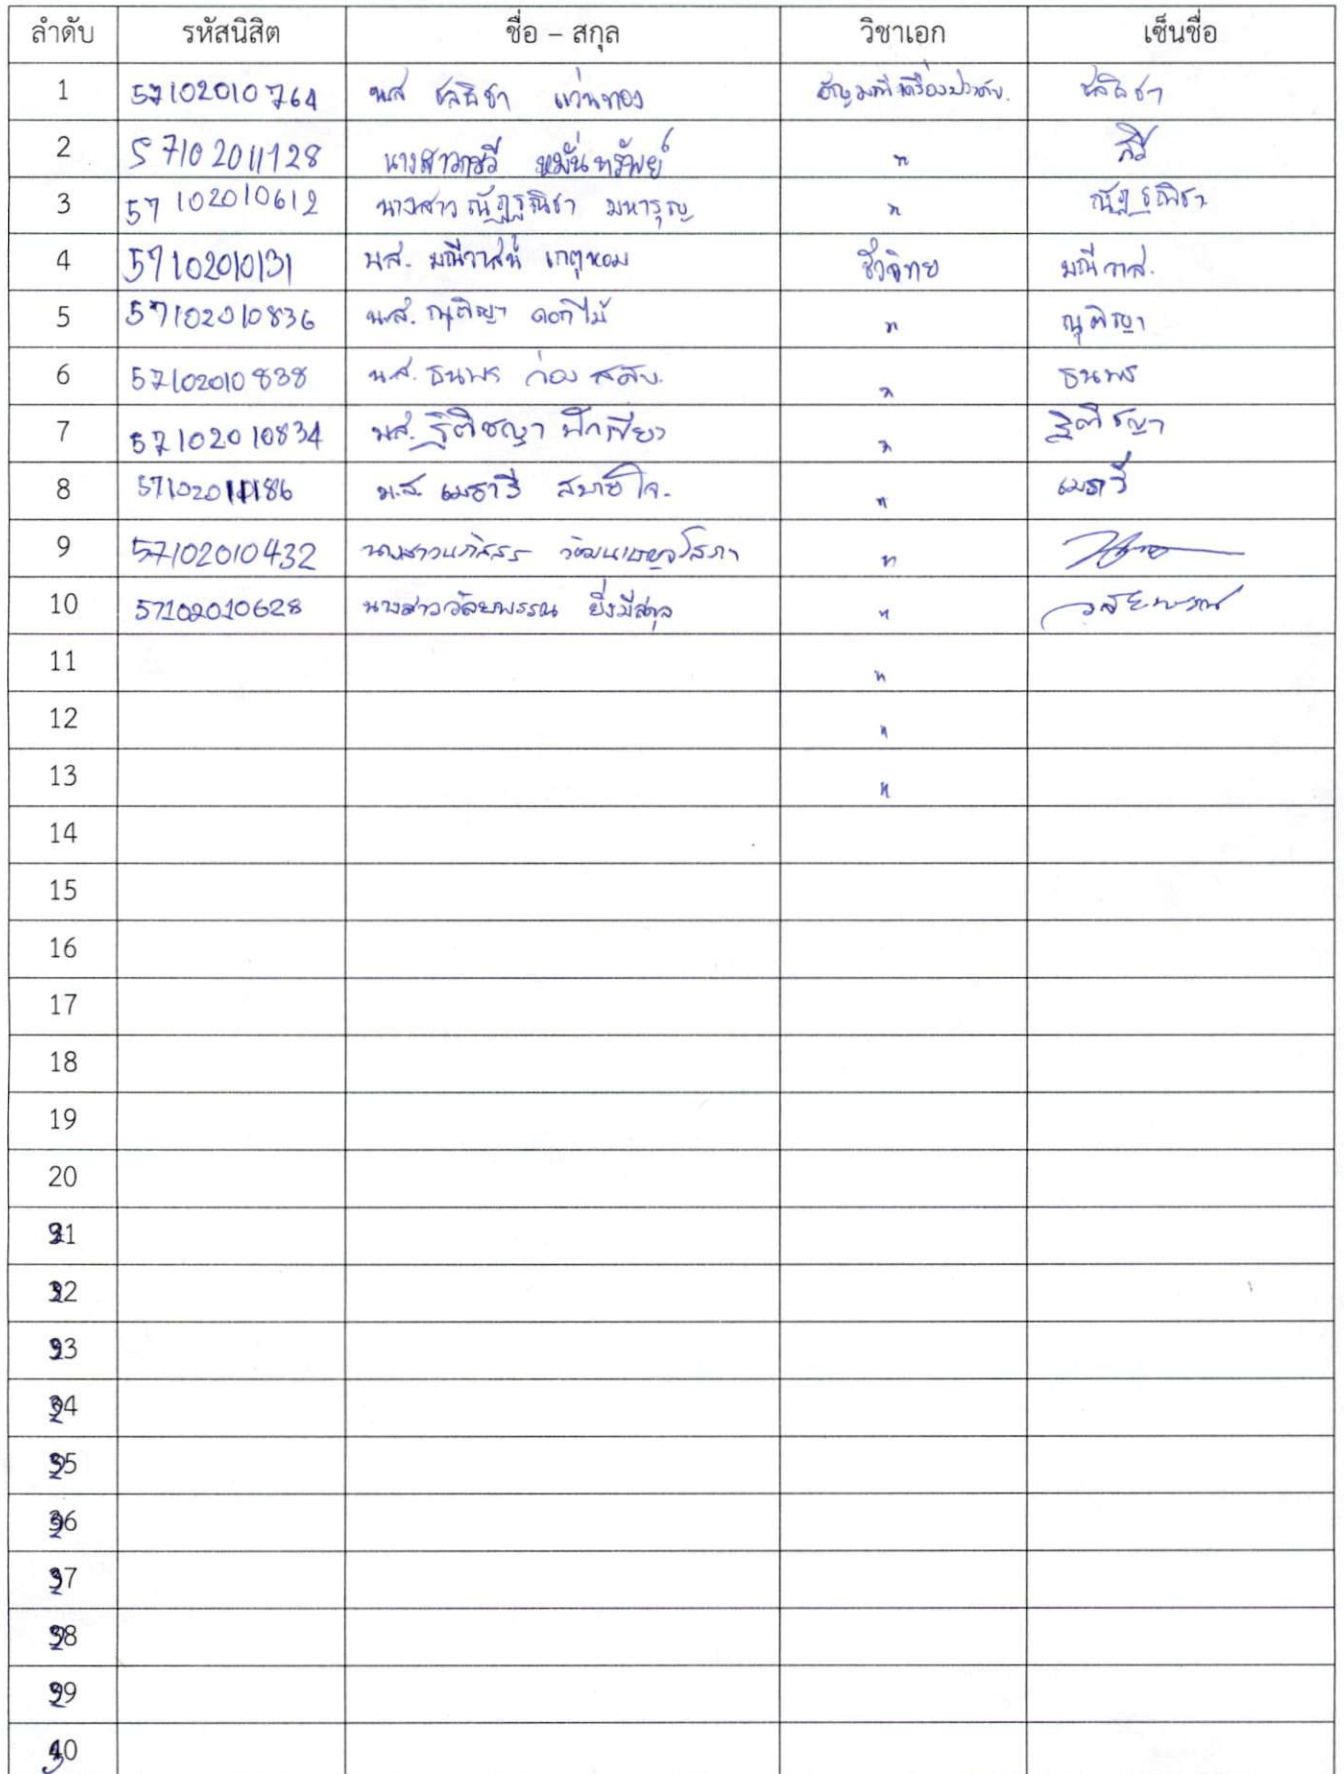 ลำดับ รหัสนิสิต ชื่อ – สกุล วิชาเอก เซ็นชื่อ
1 57102010764 นส ชลธิชา แว่นทอง อัญมณีเครื่องประดับ. ชลธิชา
2 57102011128 นางสาว หมั่นทรัพย์ "
3 57102010612 นางสาว ณัฏฐณิชา มหารุญ " ณัฏฐณิชา
4 57102010131 นส. มณีวาสน์ เกตุหอม ชีววิทย มณีวาส.
5 57102010836 น.ส. ณุติญา ดอกไม้ " ณุติญา
6 57102010838 น.ส. ธนพร " ธนพร
7 57102010834 นส. ฐิติชญา " ฐิติชญา
8 57102011186 น.ส. เมธาวี สบายใจ. " เมธาวี
9 57102010432 นางสาวนภัสสร "
10 57102010628 นางสาววัลยพรรณ ยิ่งมีสกุล "
11 "
12 "
13 "
14
15
16
17
18
19
20
21
22
23
24
25
26
27
28
29
30